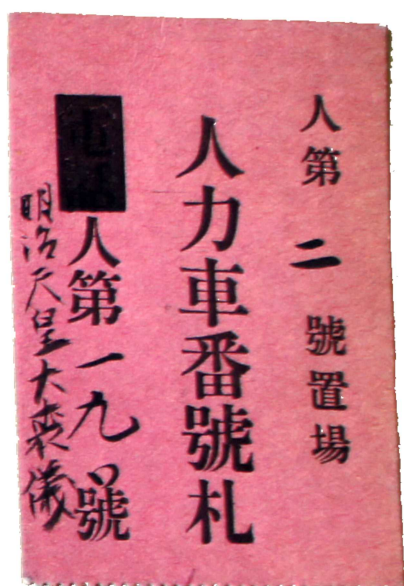 人第二號置場
人力車番號札
人第一九號
明治天皇大喪儀